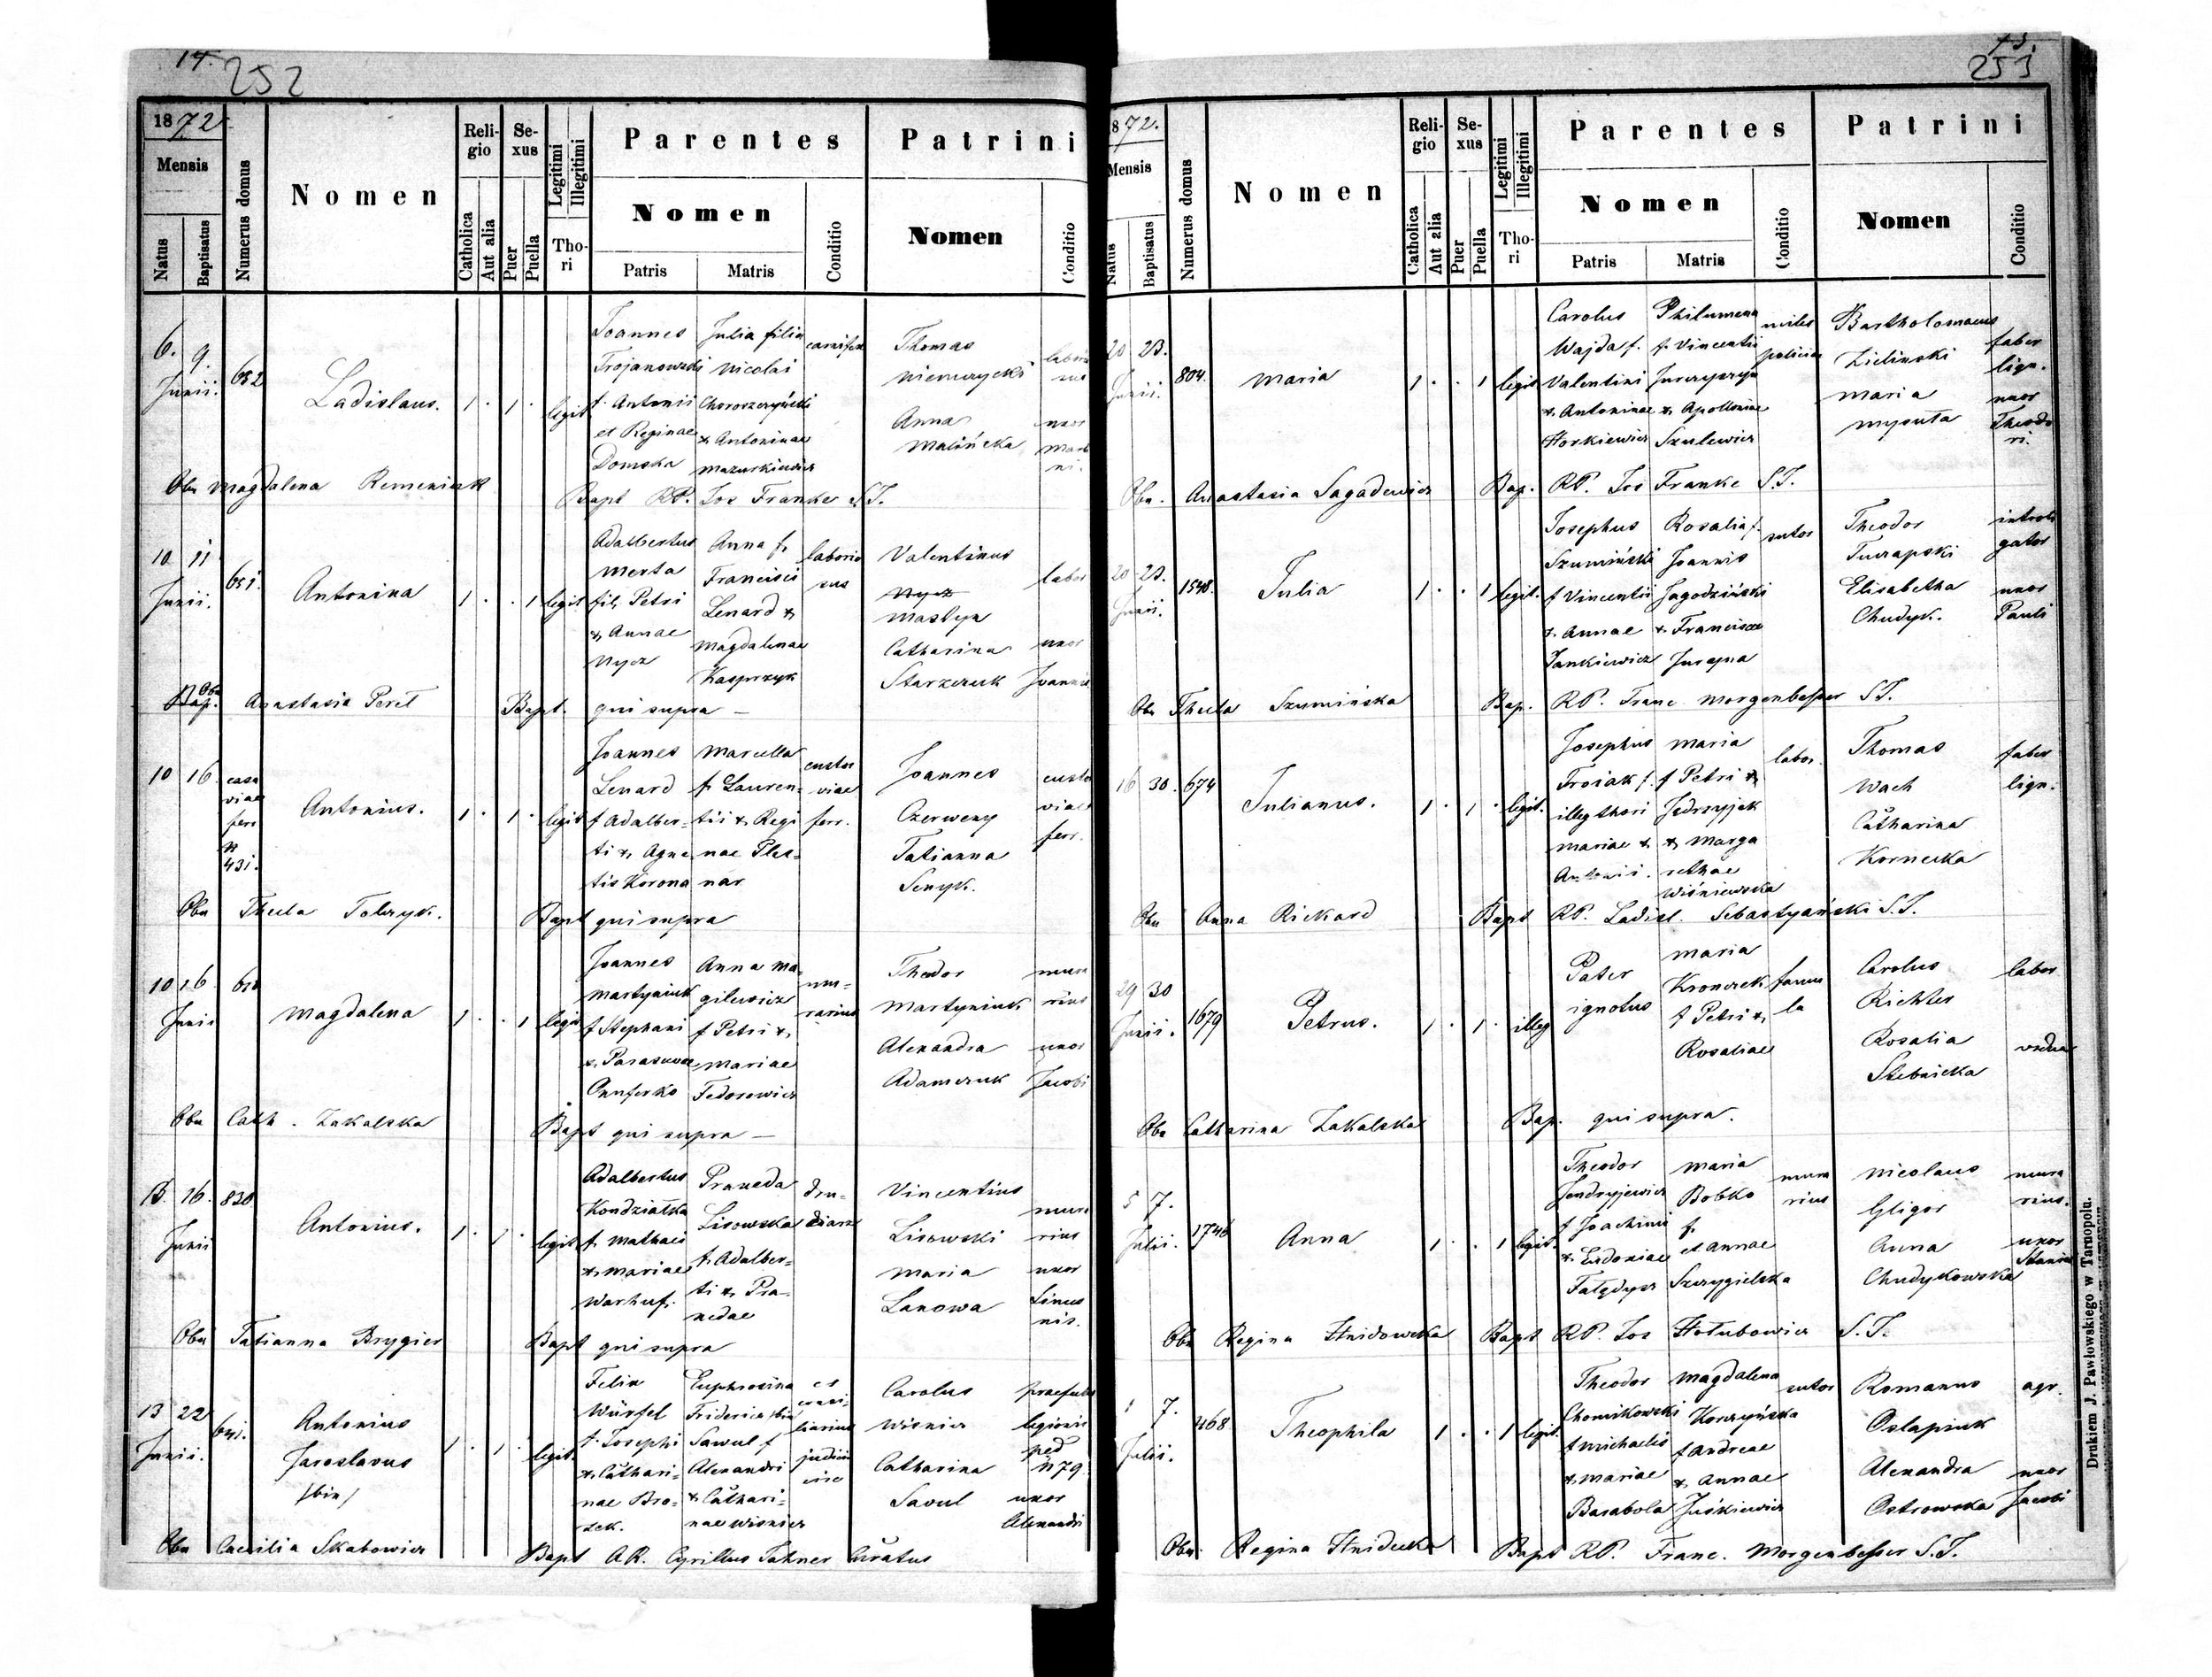 14.
252
1872
Mensis
Natus
Baptisatus
Numerus domus
Nomen
Religio
Catholica
Aut alia
Sexus
Puer
Puella
Legitimi
Illegitimi
Thori
Parentes
Nomen
Patris
Matris
Conditio
Patrini
Nomen
Conditio
6. 9.
Junii.
652
Ladislaus.
1 . 1 .
legit
Joannes
Trojanowski
f. Antonii
et Reginae
Domska
Julia filia
Nicolai
Choroszczyński
& Antoninae
Mazurkiewicz
carnifex
Thomas
Niemczycki
Anna
Malińcka
uxor
Obs Magdalena Remeniuk
Bapt RP. Jos Franke S.J.
10 11
Junii.
651.
Antonina
1 . . 1 legit
Adalbertus
Merta
fil. Petri
& Annae
Nycz
Anna f.
Francisci
Lenard &
Magdalenae
Kasprzyk
laborio
sus
Valentinus
Mastyn
Catharina
Starzeruk
labor
uxor
Joannis
Obs
Bap. Anastasia Peret
Bapt. qui supra —
10 16
casa
viae
ferr
N
431.
Antonius.
1 . 1 . legit
Joannes
Lenard
f Adalber-
ti & Agne
tis Korona
Marcella
f. Lauren-
tii & Regi
nae Ples-
nar
custos
viae
ferr.
Joannes
Czerweny
Tatianna
Senyk.
custo
viae
ferr.
Obs Thecla Tolczyk.
Bapt qui supra
10 16
Junii
Magdalena
1 . . 1 legit
Joannes
Martyniuk
f Stephani
& Parascevae
Onuferko
Anna Ma-
gilewicz
f Petri &
Mariae
Fedorowicz
mu-
rarius
Theodor
Martyniuk
Alexandra
Adamczuk
mura
rius
uxor
Jacobi
Obs Cath. Zakalska
Bapt qui supra —
13. 16.
Junii
830
Antonius.
1 . 1 . legit
Adalbertus
Kondziałka
f. Mathaei
& Mariae
Warhuf.
Praxeda
Lisowska
f. Adalber-
ti & Pra-
xedae
Vincentius
Lisowski
Maria
Lanowa
mura
rius
uxor
Obs Tatianna Brygier
Bapt qui supra
13 22
Junii.
Antonius
Jaroslavus
/bin/
1 . 1 . legit
Felix
Würfel
f. Josephi
& Cathari-
nae Bro-
zek.
Euphrosina
Friderica /bin/
Sawul f
Alexandri
& Cathari-
nae Wisnier
cs
consi-
liarius
judicii
Carolus
Wisnier
Catharina
Savul
praefectus
legionis
ped
N 79
uxor
Alexandri
Obs Caecilia Skabowicz
Bapt AR. Cyrillus Tahner Curatus
253
1872.
Mensis
Natus
Baptisatus
Numerus domus
Nomen
Religio
Catholica
Aut alia
Sexus
Puer
Puella
Legitimi
Illegitimi
Thori
Parentes
Nomen
Patris
Matris
Conditio
Patrini
Nomen
Conditio
20 23.
Junii.
804.
Maria
1 . . 1 legit
Carolus
Wajda f.
Valentini
& Antoninae
Horkiewicz
Philumena
f. Vincentii
Jurczyszyn
& Apolloniae
Szulewicz
miles
policiae
Bartholomaeus
Zielinski
Maria
Mysuta
faber
lign.
uxor
Theodo
ri.
Obs. Anastasia Sagadewicz
Bap. RP. Jos Franke S.J.
20 23.
Junii.
1548.
Julia
1 . . 1 legit.
Josephus
Szumiński
f Vincentii
& Annae
Jankiewicz
Rosalia f.
Joannis
Jagodziński
& Franciscae
Jurczyna
sutor
Theodor
Turzapski
Elisabetha
Chudyk.
introli
gator
uxor
Pauli
Obs Thecla Szumińska
Bap. RP. Franc Morgenbesser S.J.
16 30.
674
Julianus.
1 . 1 . legit.
Josephus
Trojak f.
illeg thori
Mariae &
Antonii.
Maria
f Petri &
Jedrzyjek
& Marga
rethae
Wiśniewska
labor.
Thomas
Wach
Catharina
Kornecka
faber
lign.
Obs Anna Rickard
Bapt RP. Ladisl. Sebastyański S.J.
29 30
Junii.
1679
Petrus.
1 . 1 . illeg
Pater
ignotus
Maria
Kronczek
f Petri &
Rosaliae
famu
la
Carolus
Richter
Rosalia
Stebnicka
labor
vidua
Obs Catharina Zakalska
Bap. qui supra.
5 7.
Julii.
1746
Anna
1 . . 1 legit.
Theodor
Jendryjewicz
f Joachimi
& Eudoxiae
Fałędysz
Maria
Bobko
f.
et Annae
Szczygielska
mura
rius
Nicolaus
Gligor
Anna
Chudykowska
mura
rius.
uxor
Obs Regina Hnidowska
Bapt RP. Jos Hołubowicz S.J.
7.
Julii.
468
Theophila
1 . . 1 legit.
Theodor
Chomikowski
f Michaelis
& Mariae
Barabola
Magdalena
Korczyńska
f Andreae
& Annae
Juśkiewicz
sutor
Romanus
Oslapiuk
Alexandra
Ostrowska
agr.
uxor
Jacobi
Obs. Regina Hnidecka
Bapt RP. Franc. Morgenbesser S.J.
Drukiem J. Pawłowskiego w Tarnopolu.